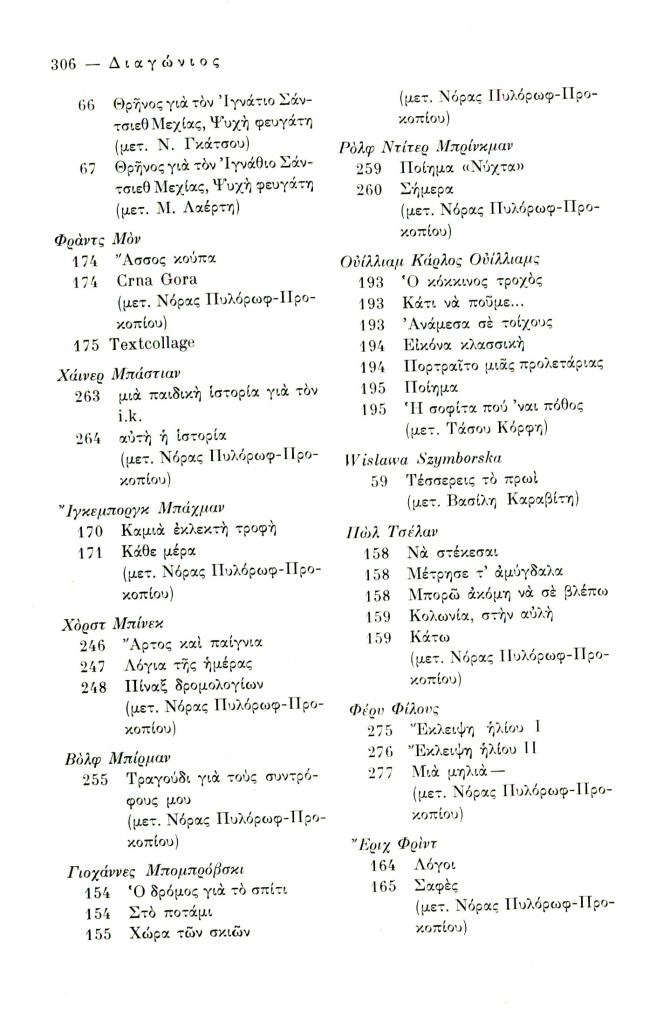 306 — Διαγώνιος
66 Θρῆνος γιὰ τὸν Ἰγνάτιο Σάν-
τσιεθ Μεχίας, Ψυχὴ φευγάτη
(μετ. Ν. Γκάτσου)
67 Θρῆνος γιὰ τὸν Ἰγνάθιο Σάν-
τσιεθ Μεχίας, Ψυχὴ φευγάτη
(μετ. Μ. Λαέρτη)
Φρὰντς Μὸν
174 Ἄσσος κούπα
174 Crna Gora
(μετ. Νόρας Πυλόρωφ-Προ-
κοπίου)
175 Textcollage
Χάινερ Μπάστιαν
263 μιὰ παιδικὴ ἱστορία γιὰ τὸν
i.k.
264 αὐτὴ ἡ ἱστορία
(μετ. Νόρας Πυλόρωφ-Προ-
κοπίου)
Ἴγκεμποργκ Μπάχμαν
170 Καμιὰ ἐκλεκτὴ τροφὴ
171 Κάθε μέρα
(μετ. Νόρας Πυλόρωφ-Προ-
κοπίου)
Χὸρστ Μπίνεκ
246 Ἄρτος καὶ παίγνια
247 Λόγια τῆς ἡμέρας
248 Πίναξ δρομολογίων
(μετ. Νόρας Πυλόρωφ-Προ-
κοπίου)
Βὸλφ Μπίρμαν
255 Τραγούδι γιὰ τοὺς συντρό-
φους μου
(μετ. Νόρας Πυλόρωφ-Προ-
κοπίου)
Γιοχάννες Μπομπρόβσκι
154 Ὁ δρόμος γιὰ τὸ σπίτι
154 Στὸ ποτάμι
155 Χώρα τῶν σκιῶν
(μετ. Νόρας Πυλόρωφ-Προ-
κοπίου)
Ρὸλφ Ντίτερ Μπρίνκμαν
259 Ποίημα «Νύχτα»
260 Σήμερα
(μετ. Νόρας Πυλόρωφ-Προ-
κοπίου)
Οὐίλλιαμ Κάρλος Οὐίλλιαμς
193 Ὁ κόκκινος τροχὸς
193 Κάτι νὰ ποῦμε...
193 Ἀνάμεσα σὲ τοίχους
194 Εἰκόνα κλασσικὴ
194 Πορτραῖτο μιᾶς προλετάριας
195 Ποίημα
195 Ἡ σοφίτα πού 'ναι πόθος
(μετ. Τάσου Κόρφη)
Wislawa Szymborska
59 Τέσσερεις τὸ πρωὶ
(μετ. Βασίλη Καραβίτη)
Πὼλ Τσέλαν
158 Νὰ στέκεσαι
158 Μέτρησε τ' ἀμύγδαλα
158 Μπορῶ ἀκόμη νὰ σὲ βλέπω
159 Κολωνία, στὴν αὐλὴ
159 Κάτω
(μετ. Νόρας Πυλόρωφ-Προ-
κοπίου)
Φέρυ Φίλους
275 Ἔκλειψη ἡλίου I
276 Ἔκλειψη ἡλίου II
277 Μιὰ μηλιὰ —
(μετ. Νόρας Πυλόρωφ-Προ-
κοπίου)
Ἔριχ Φρὶντ
164 Λόγοι
165 Σαφὲς
(μετ. Νόρας Πυλόρωφ-Προ-
κοπίου)